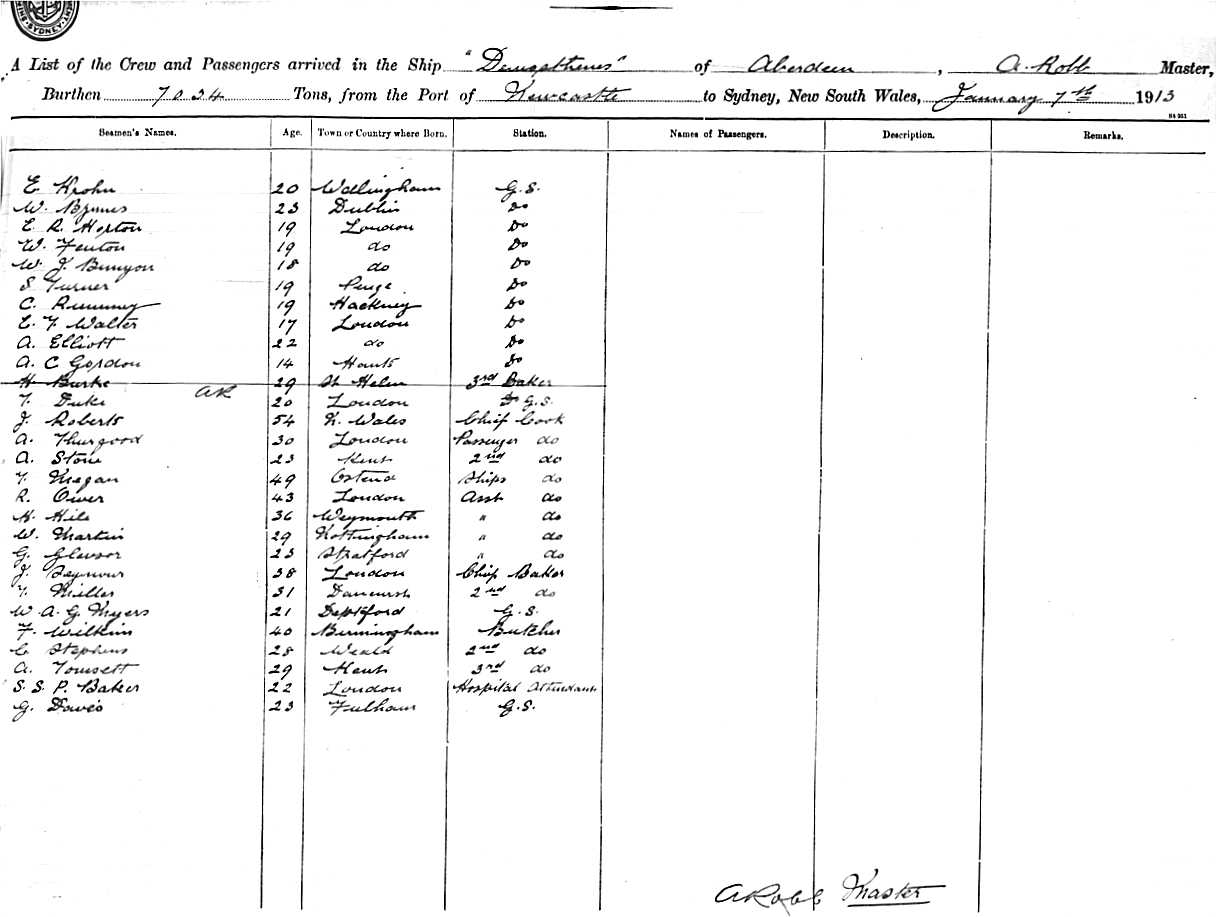 SYDNEY
A List of the Crew and Passengers arrived in the Ship "Demosthenes" of Aberdeen, A. Robb Master,
Burthen 7034 Tons, from the Port of Newcastle to Sydney, New South Wales, January 7th 1913
Seamen's Names. Age. Town or Country where Born. Station. Names of Passengers. Description. Remarks.
E. Krohn 20 Wallingham G.S.
W. Byrnes 23 Dublin Do
E. R. Horton 19 London Do
W. Fenton 19 do Do
W. J. Bunyon 18 do Do
S. Turner 19 Penge Do
C. Rumney 19 Hackney Do
E. F. Walter 17 London Do
A. Elliott 22 do Do
A. C Gordon 14 Hants Do
H Burke 29 St Helen 3rd Baker
AR
F. Duke 20 London G.S.
J. Roberts 54 N. Wales Chief Cook
A. Thurgood 30 London Passenger do
A. Stone 23 Kent 2nd do
F. Megan 49 Ostend Ships do
R. Oiver 43 London Asst do
H. Hile 36 Weymouth " do
W. Martin 29 Nottingham " do
G. 23 Stratford " do
J. Seymour 38 London Chief Baker
F. Miller 31 2nd do
W. A. G. Myers 21 Deptford G.S.
F. Wilkins 40 Birmingham Butcher
C. Stephens 28 Weald 2nd do
A. Tomsett 29 Kent 3rd do
S. S. P. Baker 22 London Hospital Attendant
G. Davis 23 Fulham G.S.
A Robb Master